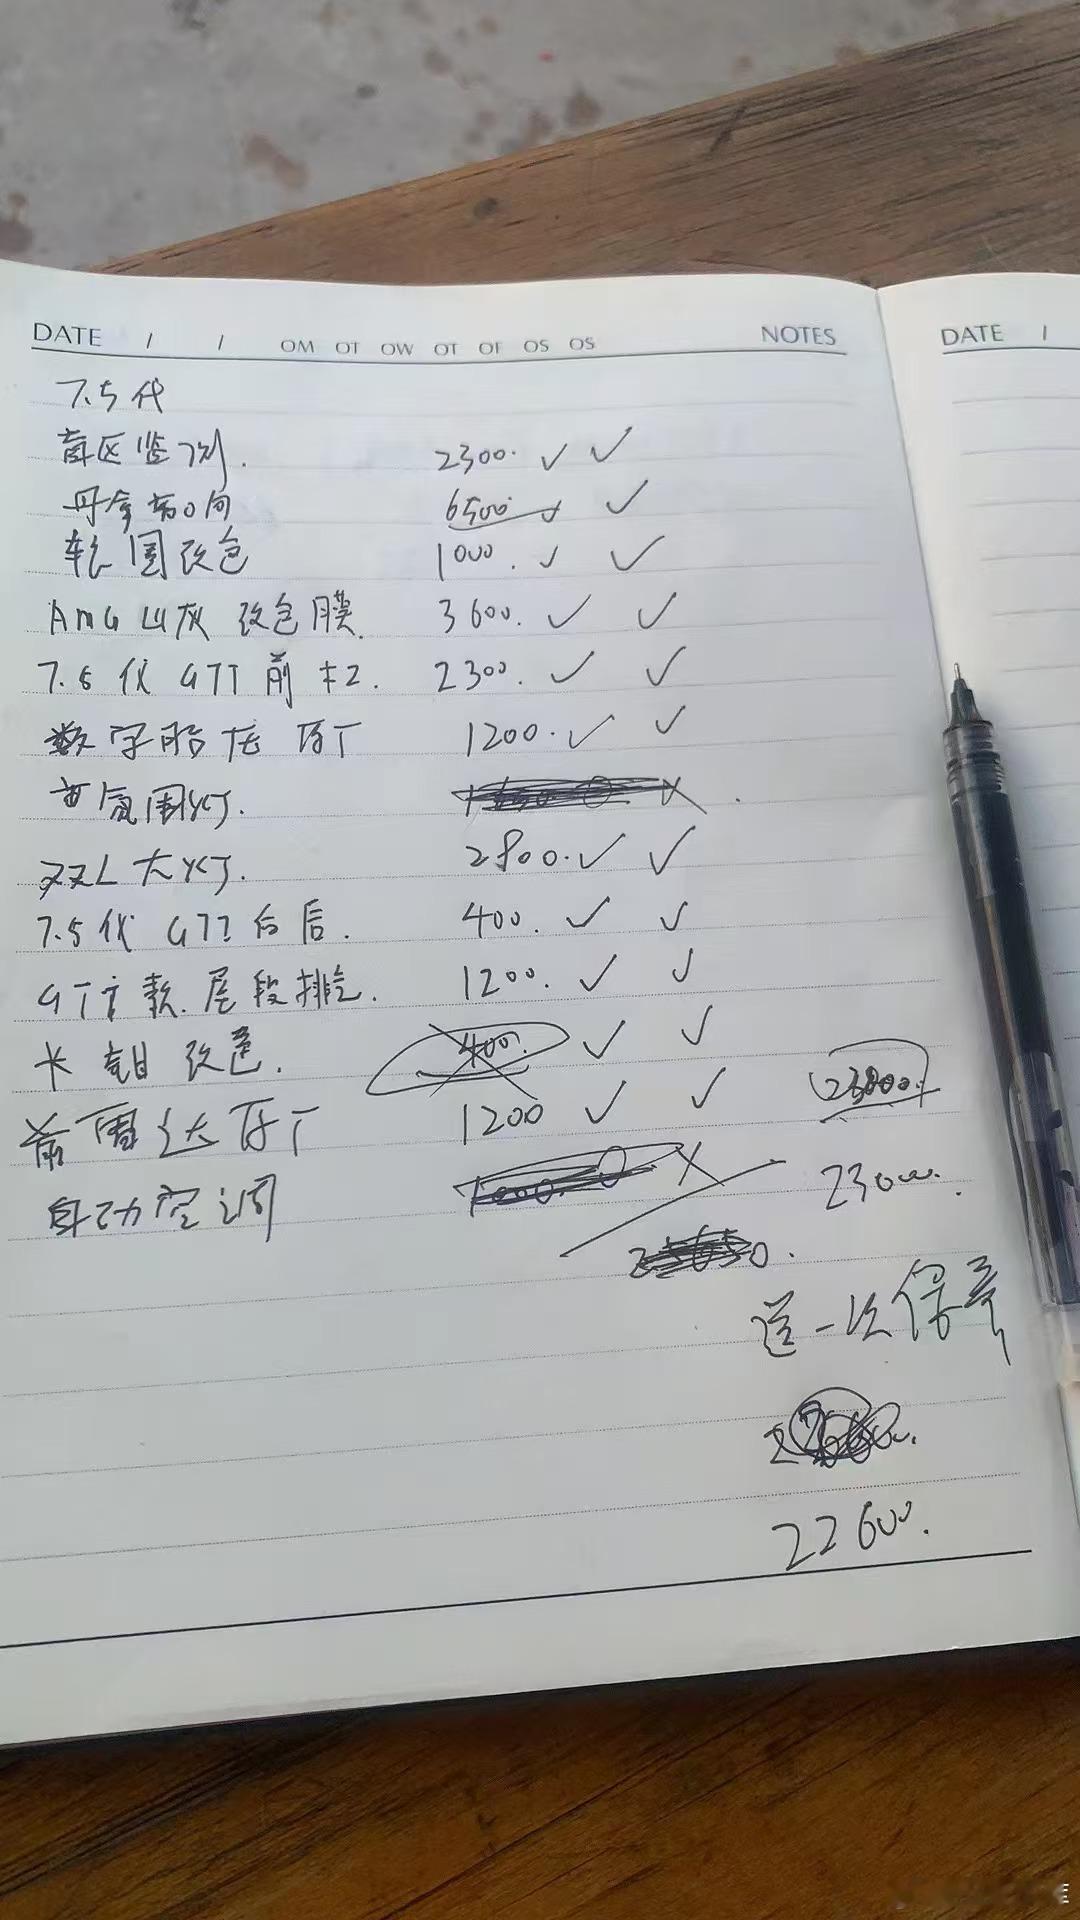 DATE / / OM OT OW OT OF OS OS NOTES
DATE /
7.5代
盲区监测. 2300.
丹拿 6500
轮圈改色 1000.
AMG山灰 改色膜. 3600.
7.5代 GTI 前杠. 2300.
数字胎压 1200.
氛围灯.
双L大灯. 2800.
7.5代 GTI 后. 400.
GTI款.尾段排气. 1200.
卡钳改色. 400.
前雷达 1200
23800.
自动空调 23000.
送一次保养
22600.